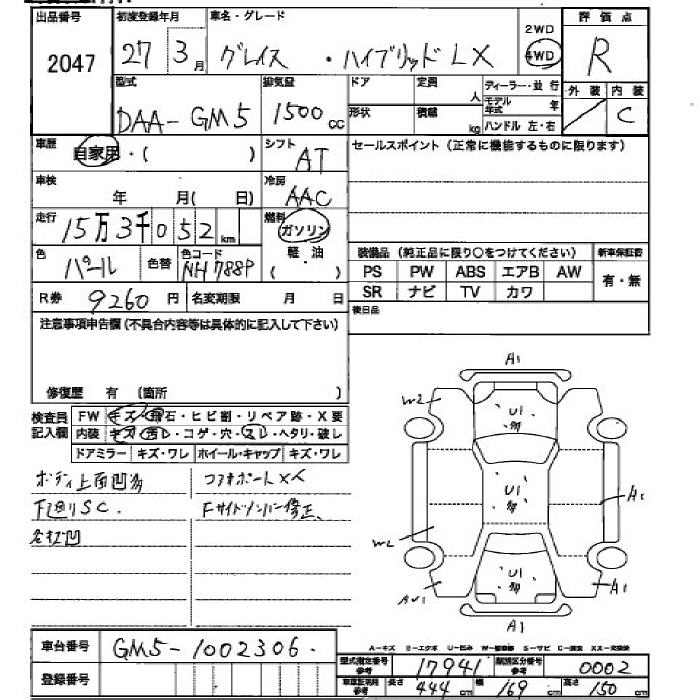 出品番号 初度登録年月 車名・グレード 2WD 評価点
2047 27 3月 グレイス ・ ハイブリッド LX 4WD R
型式 排気量 ドア 定員 人 ディーラー・並 行 外装 内装
DAA-GM5 1500cc 形状 積載 kg モデル年式 年 C
ハンドル 左・右
車歴 自家用・( ) シフト AT セールスポイント(正常に機能するものに限ります)
車検 年 月( 日) 冷房 AAC
走行 15万3千052km 燃料 ガソリン
軽・油
( )
色 パール 色替 色コード NH788P 装備品(純正品に限り○をつけてください) 新車保証書
PS PW ABS エアB AW 有・無
SR ナビ TV カワ
R券 9260円 名変期限 月 日 後日品
注意事項申告欄(不具合内容等は具体的に記入して下さい)
修復歴 有(箇所 )
検査員記入欄 FW キズ・飛石・ヒビ割・リペア跡・X要
内装 キズ・汚レ・コゲ・穴・スレ・ヘタリ・破レ
ドアミラー キズ・ワレ ホイール・キャップ キズ・ワレ
ボディ上面凹多 コアサポートXX
F廻りSC. Fサイドメンバー修正、
各杠凹
A1
W2
U1
多
U1
多
A1
W2
U1
多
AU1
A1
A1
車台番号 GM5-1002306.
A-キズ E-エクボ U-凹み W-補修跡 S-サビ C-腐食 XX-交換済
登録番号
型式指定番号 参考 17941 類別区分番号 参考 0002
車庫証明用 参考 長さ 444cm 幅 169cm 高さ 150cm